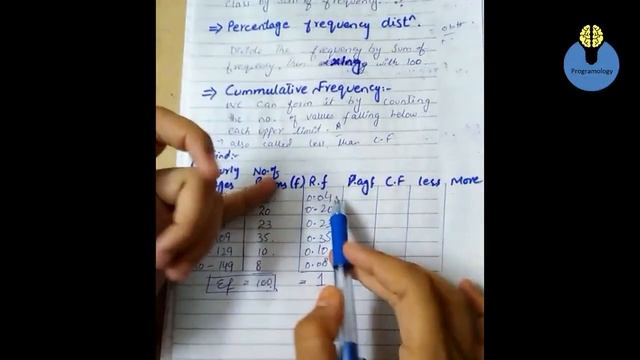 class by sum of frequency.
⇒ Percentage frequency distⁿ.
Divide the frequency by sum of
frequency, then with 100
⇒ Cummulative Frequency:-
We can form it by counting
the no. of values falling below
each upper limit.
→ also called less than C.F
No. of
(f) R.f P.age C.F less More
0.04
20 0.20
23 0.23
109 35 0.35
129 10 0.10
149 8 0.08
Σf = 100 = 1
Programology